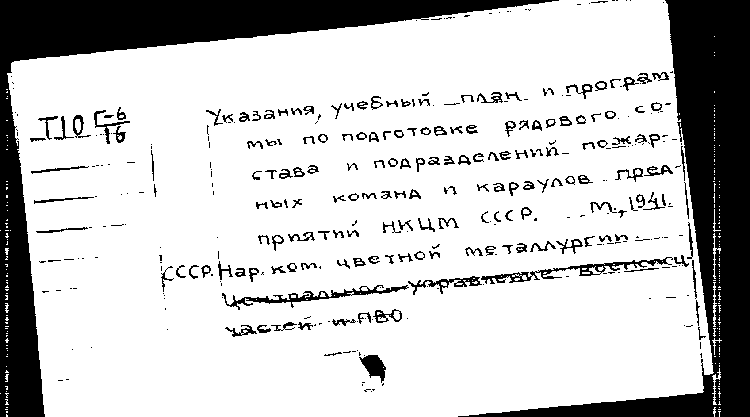 Т10 Г-6
16
Указания, учебный план и програм-
мы по подготовке рядового со-
става и подразделений пожар-
ных команд и караулов пред-
приятий НКЦМ СССР. М., 1941.
СССР. Нар. ком. цветной металлургии.
Центральное управление военизи
частей и ПВО.